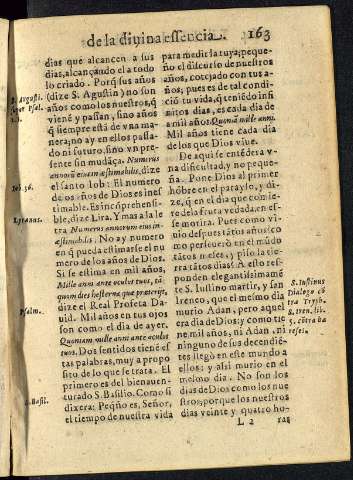 de la diuina essencia. 163
dias que alcancen a sus
dias, alcançando el a todo
lo criado. Porq̃ sus años
(dize S. Agustin) no son
años como los nuestros, q̃
viene y passan, sino años
q̃ siempre està de vna ma
nera; no ay en ellos passa
do ni futuro, sino vn pre
sente sin mudãça. Numerus
annorũ eius inæstimabilis, dize
el santo Iob: El numero
de los años de Dios es ines
timable. Es incõprehensi
ble, dize Lira. Y mas a la le
tra Numerus annorum eius in-
æstimabilis. No ay numero
en q̃ pueda estimarse el nu
mero de los años de Dios.
Si se estima en mil años,
Mille anni ante oculos tuos, tã
quam dies hesterna, quæ præterijt,
dize el Real Profeta Da-
uid. Mil años en tus ojos
son como el dia de ayer.
Quoniam mille anni ante oculos
tuos. Dos sentidos tiene es
tas palabras, muy a propo
sito de lo que se trata. El
primero es del bienauen-
turado S. Basilio. Como si
dixera: Peq̃ño es, Señor,
el tiempo de nuestra vida
S. Augusti.
super Psal.
Iob 36.
Lyranus.
Psalm.
S. Basil.
para medir la tuya; peque
ño el discurso de nuestros
años, cotejado con tus a-
ños; pues es de tal condi-
ciõ tu vida, q̃ teniẽdo infi
nitos dias, es cada dia de
mil años. Quoniã mille anni.
Mil años tiene cada dia
de los que Dios viue.
De aqui se entẽdera v-
na dificultad, y no peque-
ña. Pone Dios al primer
hõbre en el parayso, y di-
ze, q̃ en el dia que comie-
re de la fruta vedada, en es-
se morira. Pues como vi-
uio despues tãtos años: co
mo perseuerò en el mũdo
tãtos meles, y piso la tie-
rra tãtos dias? A esto res-
ponden elegantissimamẽ
te S. Iustino martir, y san
Ireneo, que el mesmo dia
murio Adan, pero aquel
era dia de Dios; y como tie
ne mil años, ni Adan, ni
ninguno de sus decendiẽ
tes llegò en este mundo a
ellos: y assi murio en el
mesmo dia. No son los
dias de Dios como los nue
stros, porque los nuestros
dias veinte y quatro ho-
S. Iustinus
Dialogo cõ
tra Tryph.
S. Iren. lib.
5. cõtra hæ
reses.
L 2 ras